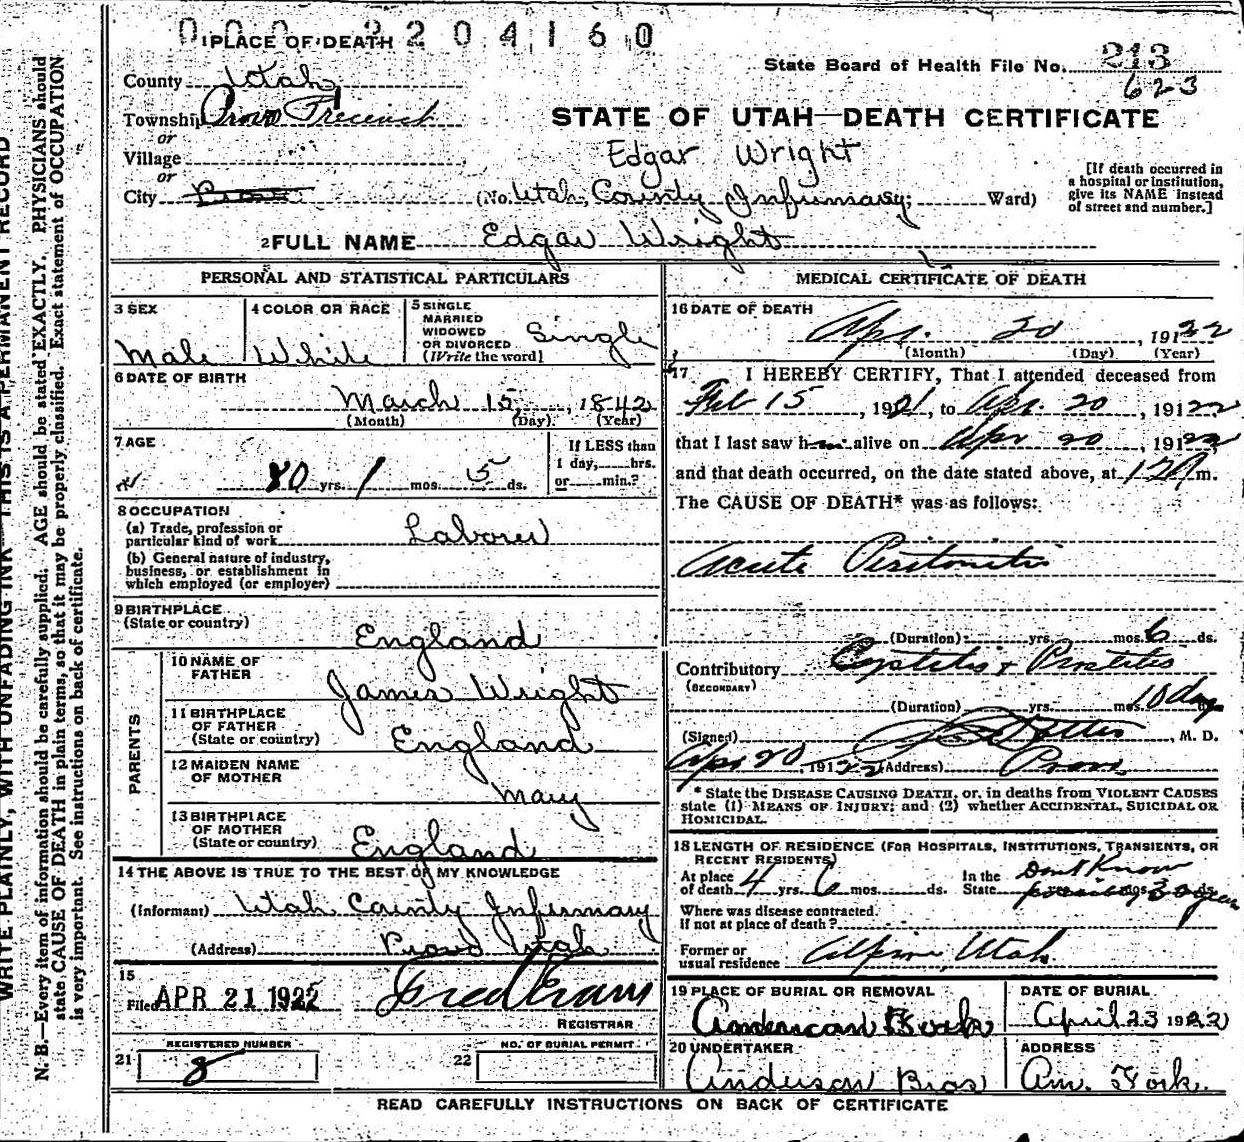 0 0 0 2 2 0 4 1 6 0
1 PLACE OF DEATH
State Board of Health File No. 213
623
County Utah
Township Provo Precinct
or
Village
or
City Provo
STATE OF UTAH—DEATH CERTIFICATE
Edgar Wright
(No. Utah County Infirmary St; Ward)
[If death occurred in
a hospital or institution,
give its NAME instead
of street and number.]
2 FULL NAME Edgar Wright
PERSONAL AND STATISTICAL PARTICULARS
3 SEX
Male
4 COLOR OR RACE
White
5 SINGLE
MARRIED
WIDOWED
OR DIVORCED
(Write the word)
Single
6 DATE OF BIRTH
March 15, 1842
(Month) (Day) (Year)
7 AGE
80 yrs. 1 mos. 5 ds.
If LESS than
1 day, hrs.
or min.?
8 OCCUPATION
(a) Trade, profession or
particular kind of work Laborer
(b) General nature of industry,
business, or establishment in
which employed (or employer)
9 BIRTHPLACE
(State or country)
England
PARENTS
10 NAME OF
FATHER
James Wright
11 BIRTHPLACE
OF FATHER
(State or country)
England
12 MAIDEN NAME
OF MOTHER
Mary
13 BIRTHPLACE
OF MOTHER
(State or country)
England
14 THE ABOVE IS TRUE TO THE BEST OF MY KNOWLEDGE
(Informant) Utah County Infirmary
(Address) Provo Utah
15
Filed APR 21 1922 Fred Evans
REGISTRAR
21 REGISTERED NUMBER
8
22 NO. OF BURIAL PERMIT
MEDICAL CERTIFICATE OF DEATH
16 DATE OF DEATH
Apr. 20, 191 22
(Month) (Day) (Year)
17 I HEREBY CERTIFY, That I attended deceased from
Feb 15, 1921, to Apr. 20, 191 22
that I last saw h alive on Apr 20, 191 22
and that death occurred, on the date stated above, at m.
The CAUSE OF DEATH* was as follows:
Acute Peritonitis
(Duration) yrs. mos. 6 ds.
Contributory Cystitis & Prostitis
(SECONDARY)
(Duration) yrs. mos. 10 day
(Signed) , M. D.
Apr 20, 191 22 (Address) Provo
* State the DISEASE CAUSING DEATH, or, in deaths from VIOLENT CAUSES
state (1) MEANS OF INJURY; and (2) whether ACCIDENTAL, SUICIDAL OR
HOMICIDAL.
18 LENGTH OF RESIDENCE (FOR HOSPITALS, INSTITUTIONS, TRANSIENTS, OR
RECENT RESIDENTS)
At place
of death 4 yrs. 6 mos. ds.
In the
State
Dont Know
possibly 30 years
Where was disease contracted.
if not at place of death?
Former or
usual residence Alpine, Utah.
19 PLACE OF BURIAL OR REMOVAL
American Fork
DATE OF BURIAL
April 23 1922
20 UNDERTAKER
Anderson Bros
ADDRESS
Am. Fork.
READ CAREFULLY INSTRUCTIONS ON BACK OF CERTIFICATE
WRITE PLAINLY, WITH UNFADING INK—THIS IS A PERMANENT RECORD
N. B.—Every item of information should be carefully supplied. AGE should be stated EXACTLY. PHYSICIANS should
state CAUSE OF DEATH in plain terms, so that it may be properly classified. Exact statement of OCCUPATION
is very important. See instructions on back of certificate.